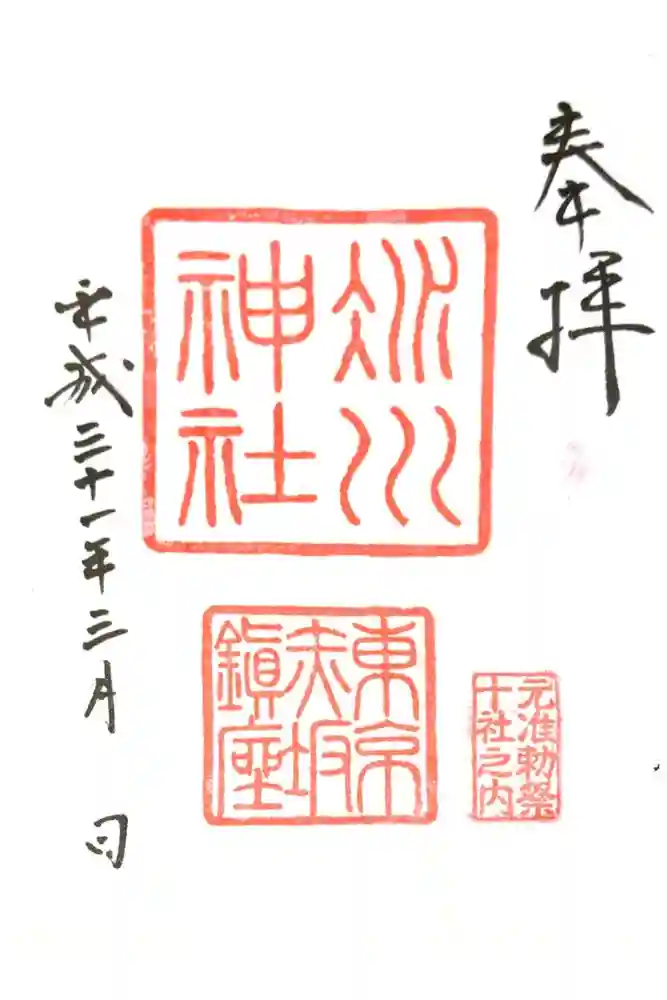 奉拝
氷川
神社
東京
赤坂
鎮座
元准勅祭
十社之内
平成三十一年三月 日